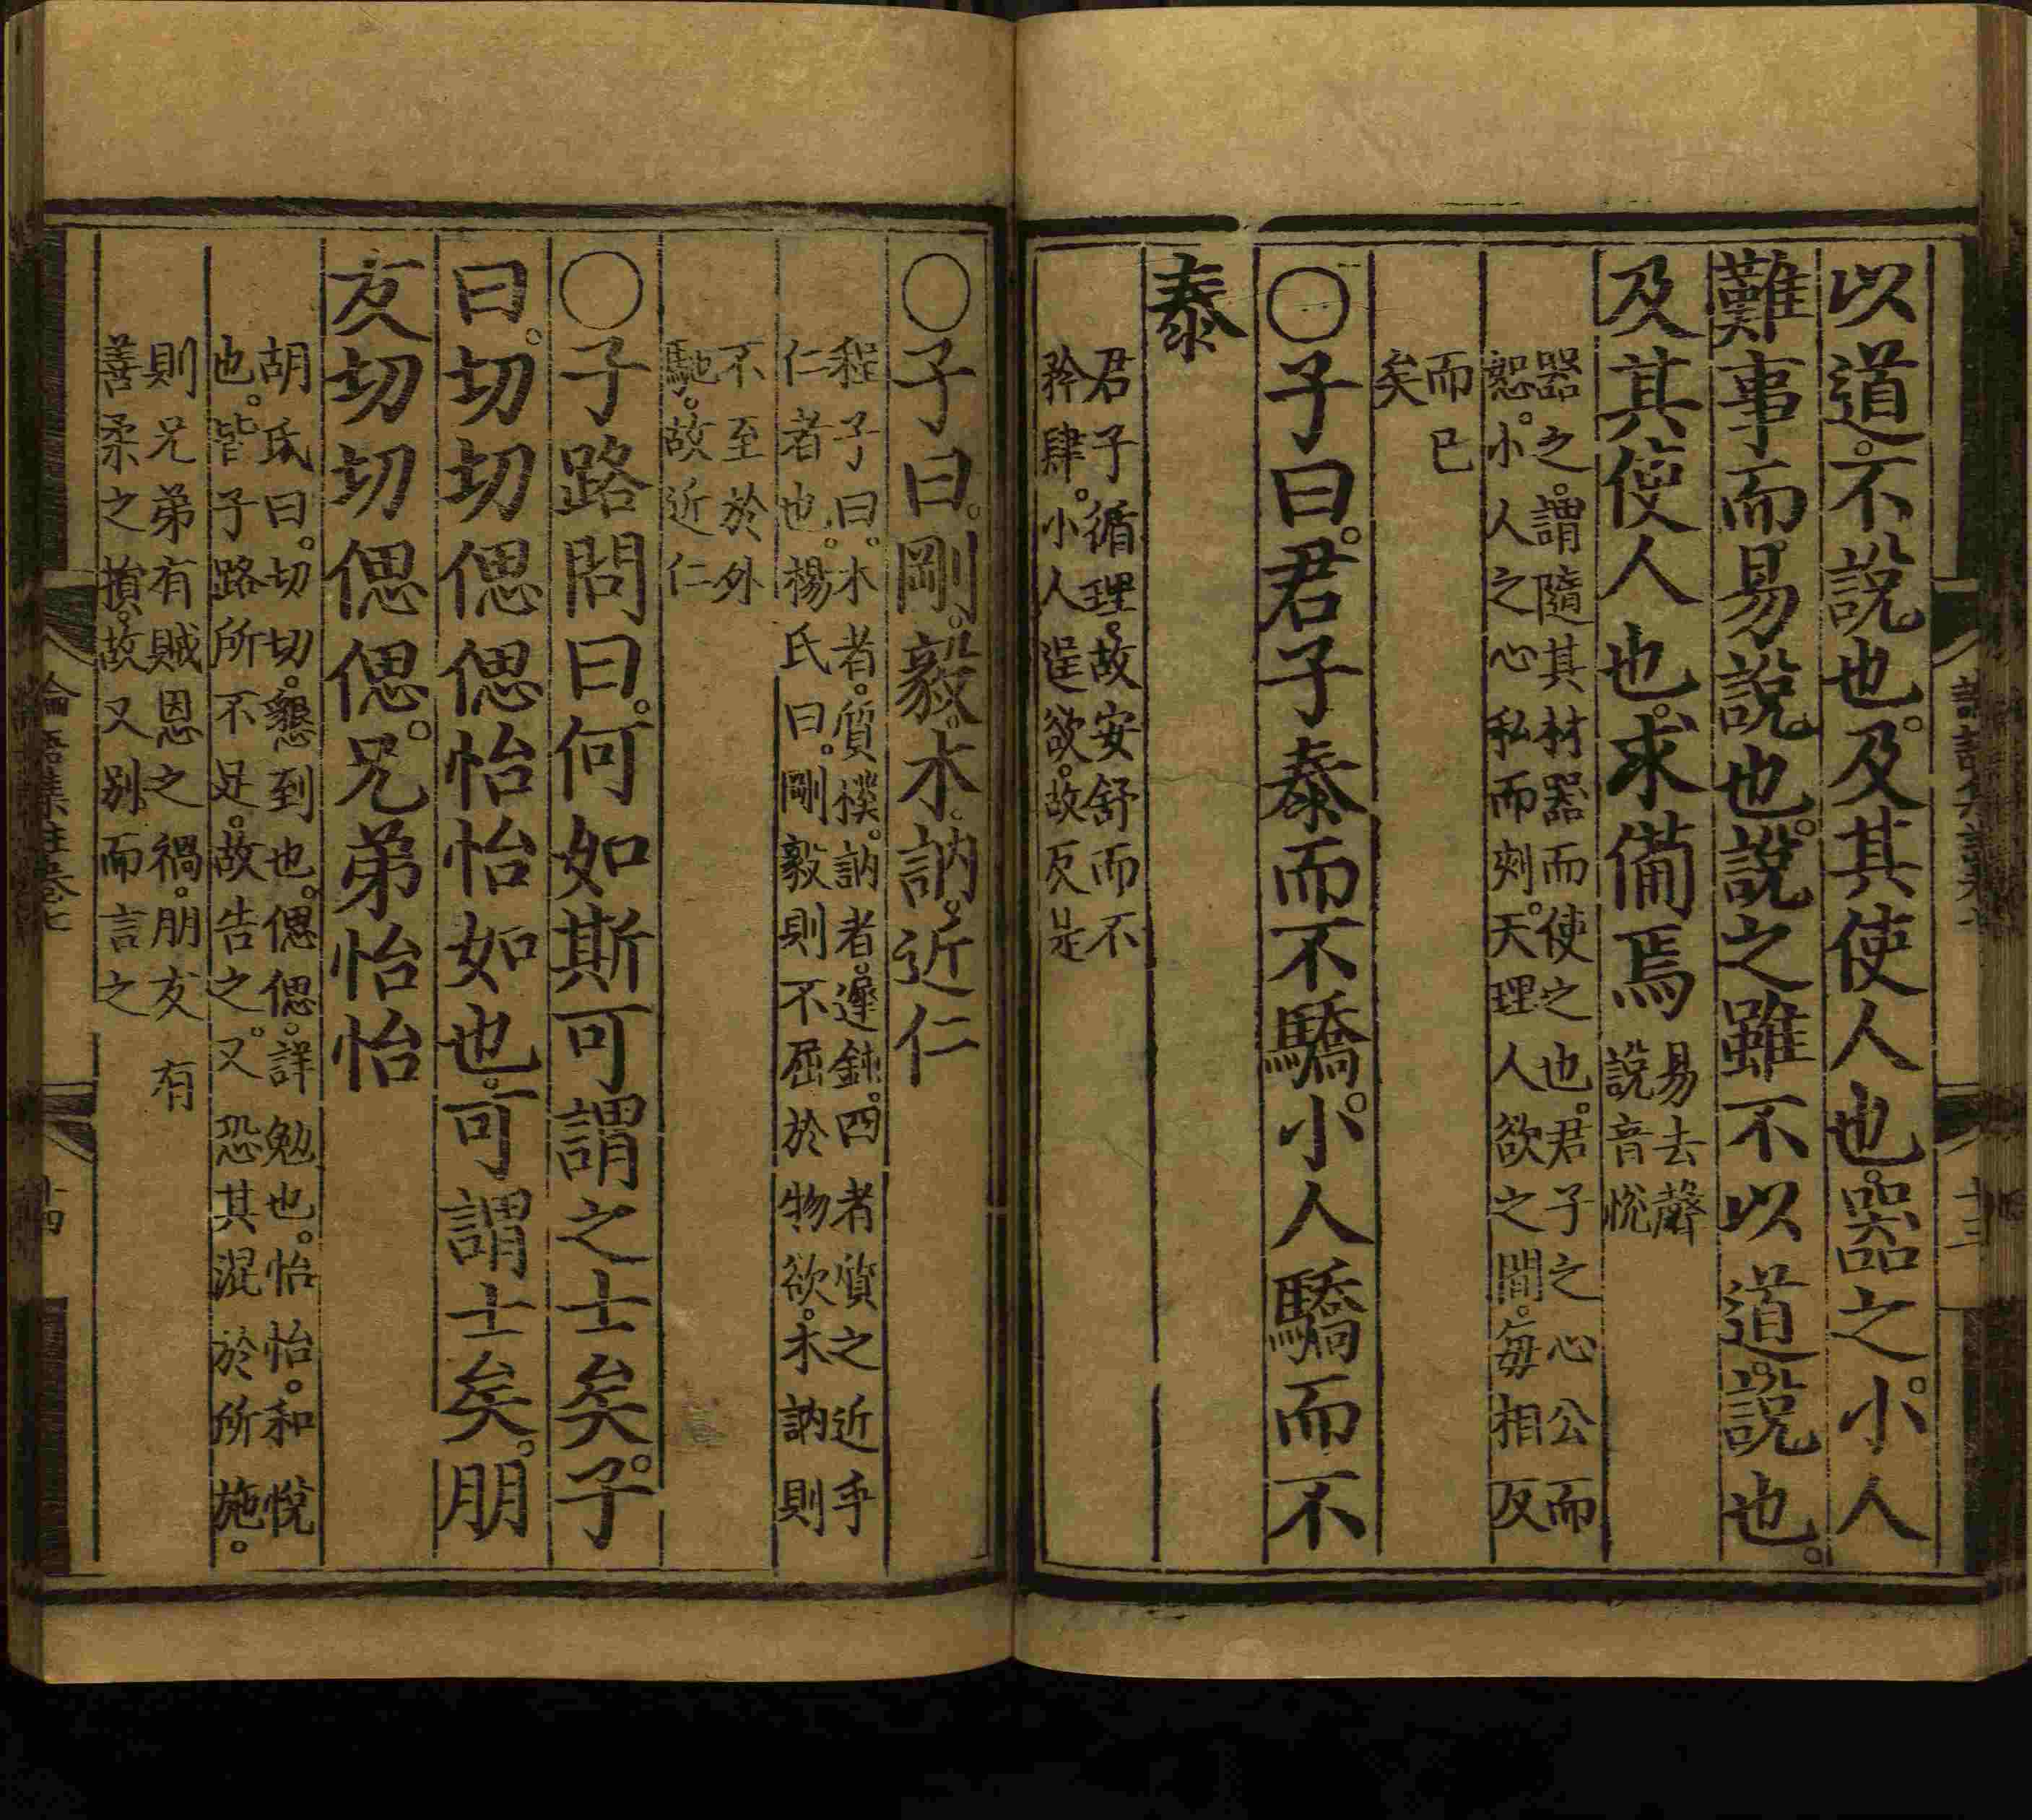 以道。不說也。及其使人也。器之。小人
難事而易說也。說之雖不以道。說也。
及其使人也。求備焉
易去聲
說音悅
器之。謂隨其材器而使之也。君子之心公而
恕。小人之心私而刻。天理人欲之間。每相反
而已
矣
○子曰。君子泰而不驕。小人驕而不
泰
君子循理。故安舒而不
矜肆。小人逞欲。故反是
○子曰。剛。毅。木。訥。近仁
程子曰。木者。質樸。訥者。遲鈍。四者質之近乎
仁者也。楊氏曰。剛毅則不屈於物欲。木訥則
不至於外
馳。故近仁
○子路問曰。何如斯可謂之士矣。子
曰。切切偲偲怡怡如也。可謂士矣。朋
友切切偲偲。兄弟怡怡
胡氏曰。切切。懇到也。偲偲。詳勉也。怡怡。和悅
也。皆子路所不足。故告之。又恐其混於所施。
則兄弟有賊恩之禍。朋友有
善柔之損。故又別而言之
論語集註卷七
十四
十三